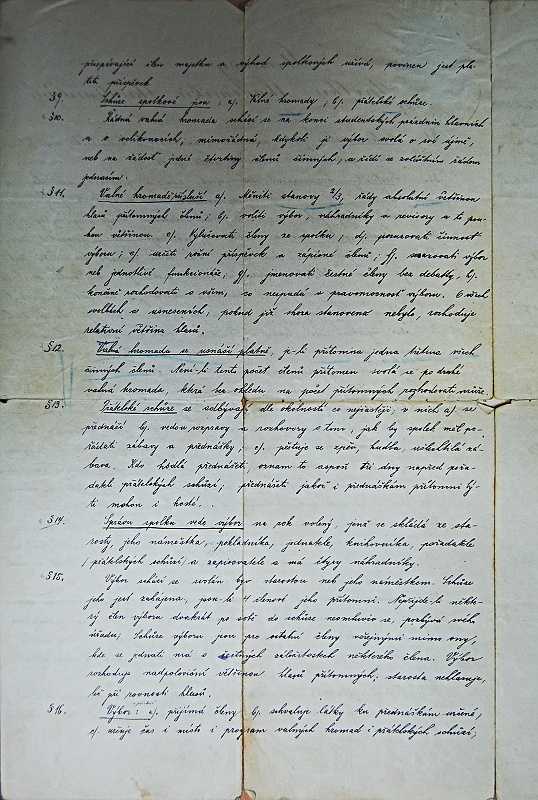 přispívající člen majetku a výhod spolkových užívá, povinen jest pla-
titi příspěvek.
§ 9. Schůze spolkové jsou: a). Valné hromady; b). přátelské schůze.
§ 10. Řádná valná hromada schází se na konci studentských prázdnin hlavních
a o velikonocích, mimořádná, kdykoli ji výbor svolá o své újmě,
neb na žádost jedné čtvrtiny členů činných, a řídí se zvláštním řádem
jednacím.
§ 11. Valné hromadě přísluší a). Měniti stanovy 2/3, řády absolutní většinou
hlasů přítomných členů; b). voliti výbor, náhradníky a revisory a to pou-
hou většinou. c). Vylučovati členy ze spolku; d). posuzovati činnost
výboru; e). určiti roční příspěvek a zápisné členů; f). sesazovati výbor
neb jednotlivé funkcionáře; g). jmenovati čestné členy bez debatty, h).
konečně rozhodovati o všem, co nespadá v pravomocnost výboru. O všech
volbách a usneseních, pokud již shora stanoveno nebylo, rozhoduje
relativní většina hlasů.
§ 12. Valná hromada se usnáší platně, je-li přítomna jedna třetina všech
činných členů. Není-li tento počet členů přítomen svolá se po druhé
valná hromada, která bez ohledu na počet přítomných rozhodovati může.
§ 13. Přátelské schůze se odbývají dle okolností co nejčastěji, v nich a). se
přednáší b). vedou rozpravy a rozhovory o tom, jak by spolek měl po-
řádati zábavy a přednášky, c). pěstuje se zpěv, hudba, ušlechtilá zá-
bava. Kdo hodlá přednášeti, oznam to aspoň tři dny napřed pořa-
dateli přátelských schůzí; přednášeti jakož i přednáškám přítomni bý-
ti mohou i hosté.
§ 14. Správu spolku vede výbor na rok volený, jenž se skládá ze sta-
rosty, jeho náměstka, pokladníka, jednatele, knihovníka, pořadatele
/přátelských schůzí/ a zapisovatele a má čtyry náhradníky.
§ 15. Výbor schází se svolán byv starostou neb jeho náměstkem. Schůze
jeho jest zahájena, jsou-li 4 členové jeho přítomni. Nepřijde-li někte-
rý člen výboru do schůze neomluviv se, pozbývá svého
úřadu; Schůze výboru jsou pro ostatní členy veřejnými mimo ony,
kde se jednati má o čestných záležitostech některého člena. Výbor
rozhoduje nadpoloviční většinou hlasů přítomných, starosta nehlasuje,
leč při rovnosti hlasů.
§ 16. Výbor: a). přijímá členy b). schvaluje látky ku přednáškám určené,
c). určuje čas i místo i program valných hromad i přátelských schůzí;